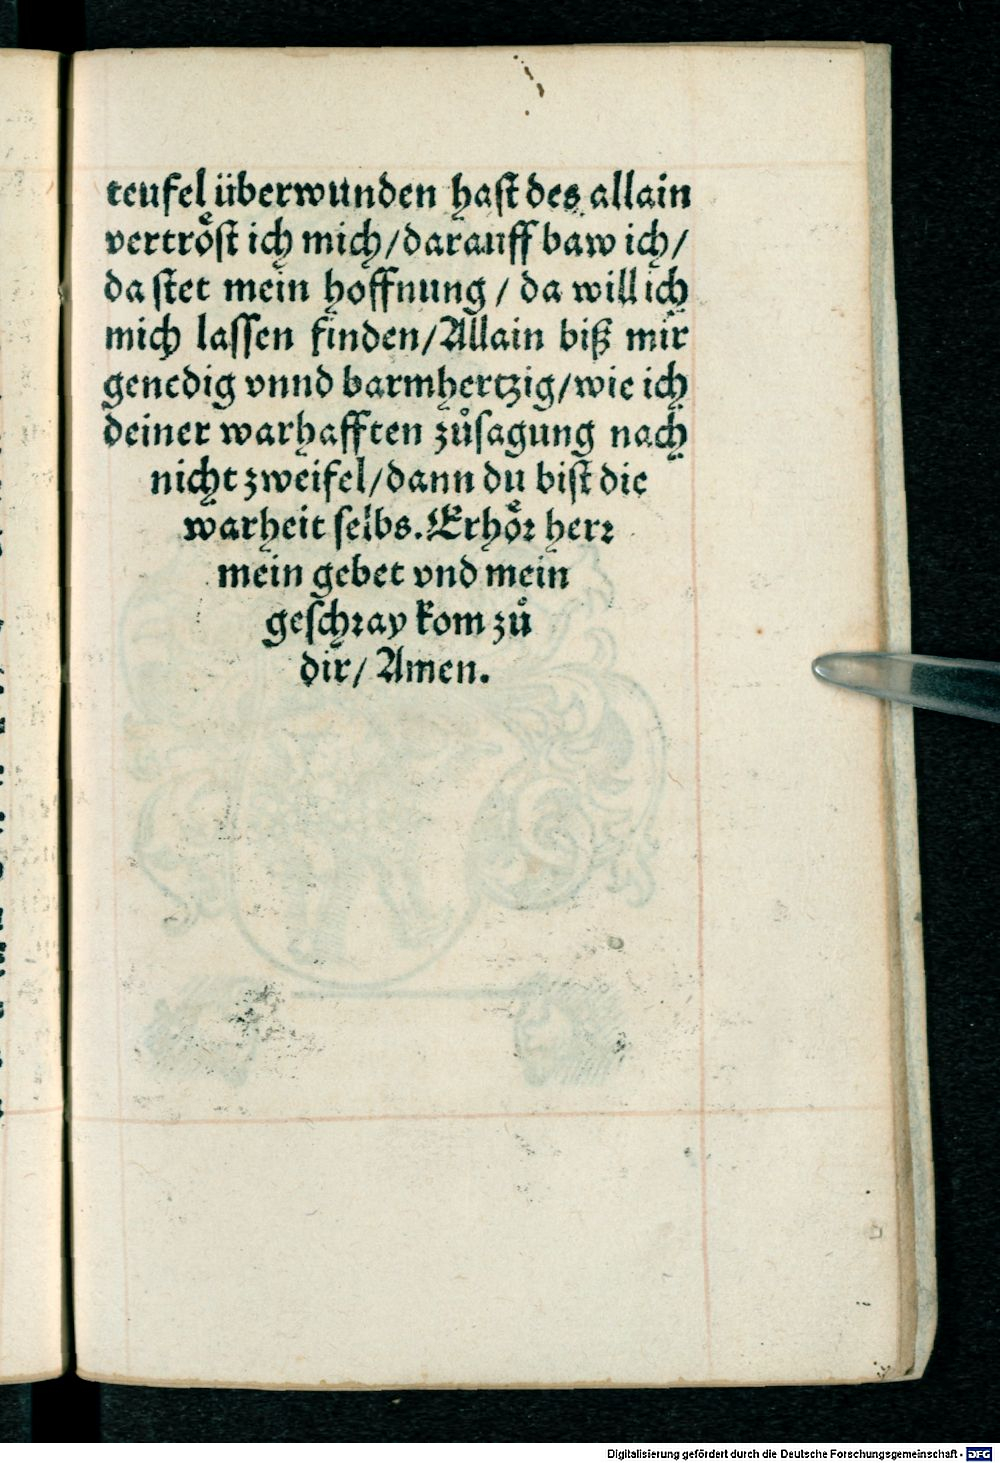 teufel überwunden hast des allain
vertroͤst ich mich/darauff baw ich/
da stet mein hoffnung / da will ich
mich lassen finden/Allain biß mir
genedig vnnd barmhertzig/wie ich
deiner warhafften zuͦsagung nach
nicht zweifel/dann du bist die
warheit selbs. Erhoͤr herr
mein gebet vnd mein
geschray kom zuͦ
dir/ Amen.
Digitalisierung gefördert durch die Deutsche Forschungsgemeinschaft - DFG